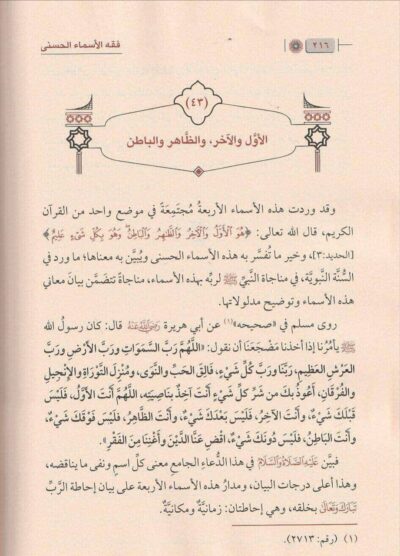 ٢١٦
فقه الأسماء الحسنى
(٤٣)
الأوَّل والآخر، والظَّاهر والباطن
وقد وردت هذه الأسماء الأربعةُ مُجتمِعَةً في موضع واحد من القرآن
الكريم، قال الله تعالى: ﴿هُوَ ٱلْأَوَّلُ وَٱلْآخِرُ وَٱلظَّٰهِرُ وَٱلْبَاطِنُ ۖ وَهُوَ بِكُلِّ شَىْءٍ عَلِيمٌ﴾
[الحديد:٣]، وخير ما تُفسَّر به هذه الأسماء الحسنى ويُبيَّن به معناها؛ ما ورد في
السُّنَّة النَّبويَّة، في مناجاة النَّبيِّ ﷺ لربِّه بهذه الأسماء، مناجاةً تتضمَّن بيانَ معاني
هذه الأسماء وتوضيح مدلولاتها.
روى مسلم في «صحيحه»(١) عن أبي هريرة رَضِيَ اللَّهُ عَنْهُ قال: كان رسولُ الله
ﷺ يأمرُنا إذا أخذنا مَضْجَعَنا أن نقول: «اللَّهُمَّ رَبَّ السَّمَوَاتِ وَرَبَّ الأَرْضِ وَرَبَّ
العَرْشِ العَظِيمِ، رَبَّنَا وَرَبَّ كُلِّ شَيْءٍ، فَالِقَ الحَبِّ وَالنَّوَى، وَمُنْزِلَ التَّوْرَاةِ وَالإِنْجِيلِ
وَالفُرْقَانِ، أَعُوذُ بِكَ مِنْ شَرِّ كُلِّ شَيْءٍ أَنْتَ آخِذٌ بِنَاصِيَتِهِ، اللَّهُمَّ أَنْتَ الأَوَّلُ، فَلَيْسَ
قَبْلَكَ شَيْءٌ، وَأَنْتَ الآخِرُ، فَلَيْسَ بَعْدَكَ شَيْءٌ، وَأَنْتَ الظَّاهِرُ، فَلَيْسَ فَوْقَكَ شَيْءٌ،
وَأَنْتَ البَاطِنُ، فَلَيْسَ دُونَكَ شَيْءٌ، اقْضِ عَنَّا الدَّيْنَ وَأَغْنِنَا مِنَ الفَقْرِ».
فبيَّن عَلَيْهِ الصَّلَاةُ وَالسَّلَامُ في هذا الدُّعاءِ الجامع معنى كلِّ اسمٍ ونفى ما يناقضه،
وهذا أعلى درجات البيان، ومدارُ هذه الأسماء الأربعة على بيان إحاطة الرَّبِّ
تَبَارَكَ وَتَعَالَى بخلقه، وهي إحاطتان: زمانيَّةٌ ومكانيَّةٌ.
(١) (رقم: ٢٧١٣).